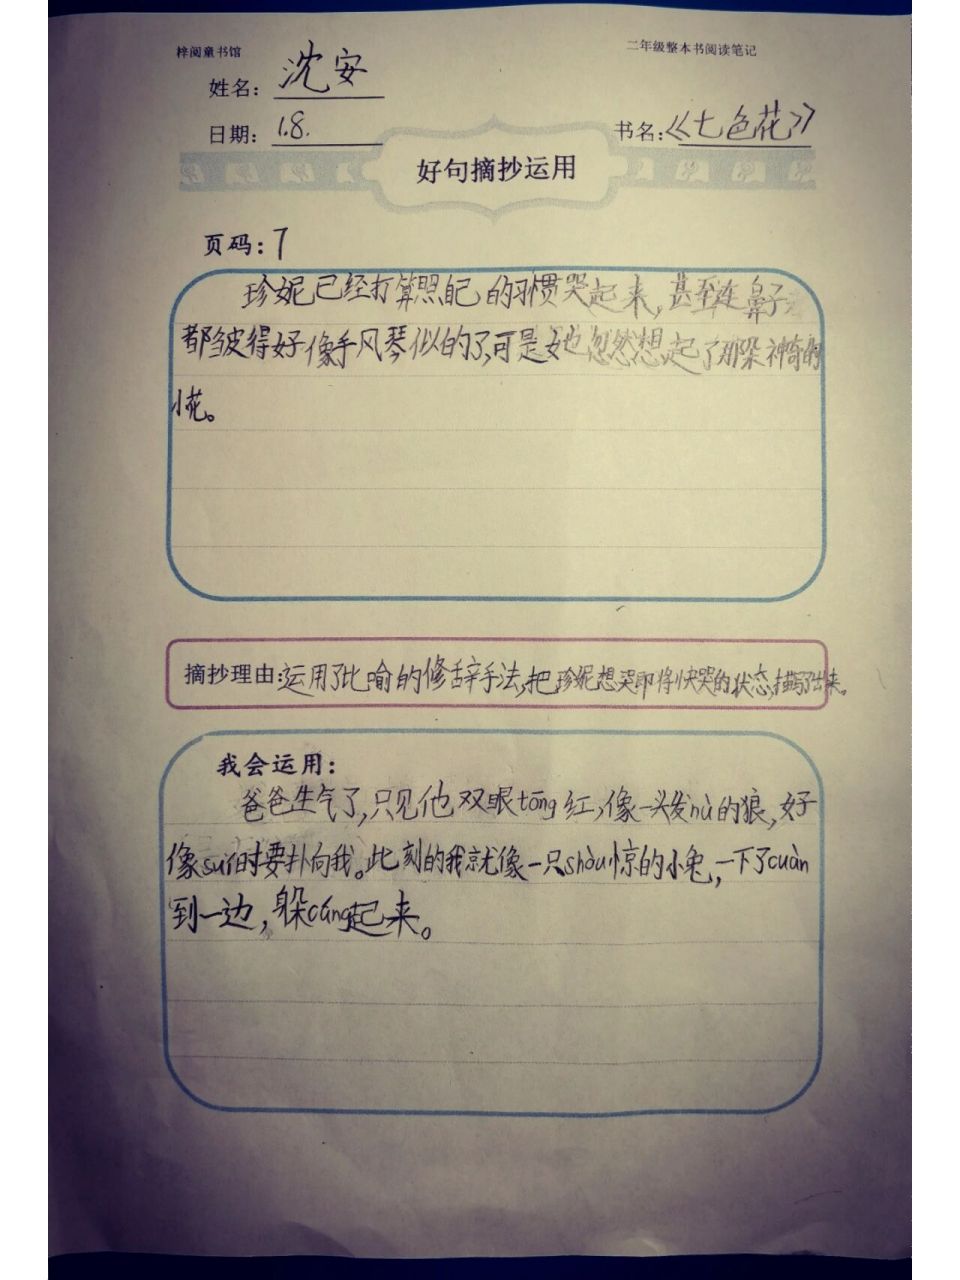 梓阅童书馆
二年级整本书阅读笔记
姓名：沈安
日期：1.8.
书名：《七色花》
好句摘抄运用
页码：7
珍妮已经打算照自己的习惯哭起来，甚至连鼻子
都皱得好像手风琴似的了，可是她忽然想起了那朵神奇的
小花。
摘抄理由：运用了比喻的修辞手法，把珍妮想哭即将快哭的状态，描写了出来。
我会运用：
爸爸生气了，只见他双眼tōng红，像一头发nù的狼，好
像suí时要扑向我。此刻的我就像一只shòu惊的小兔，一下了cuàn
到一边，躲cáng起来。